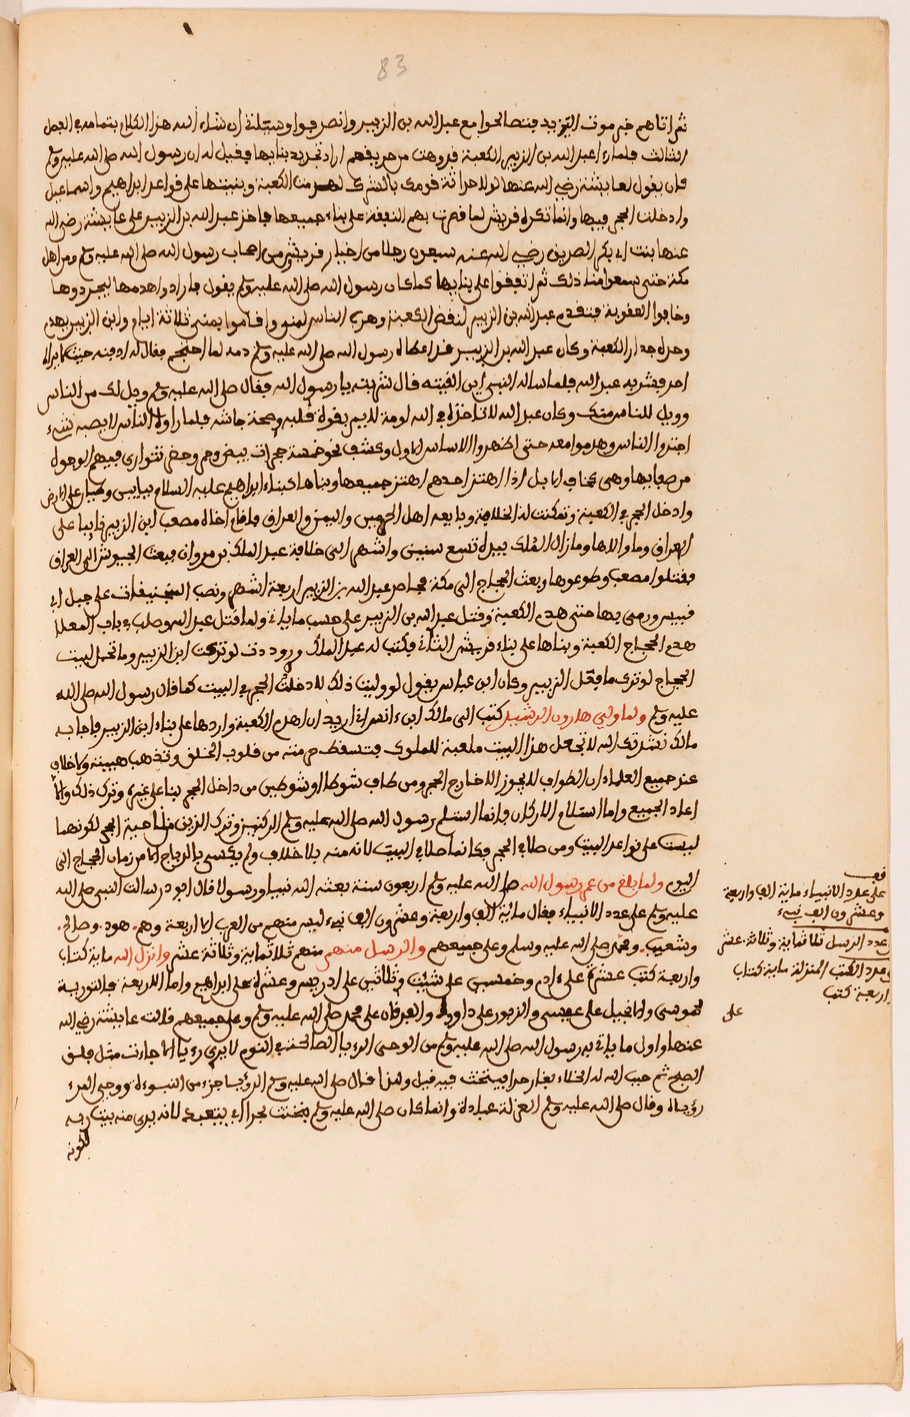 83
ثم اتاهم خبر موت اليزيد فتصالحوا مع عبد الله بن الزبير وانصرفوا وسيلة ان شاء الله هذا الكلام بتمامه في الفصل
الثالث فلما راء عبد الله بن الزبير الكعبة قد وهت من حريقهم اراد تجريد بنايها فقيل له ان رسول الله صلى الله عليه وسلم
كان يقول لعايشة رضي الله عنها لولا حداثة قومك بالشرك لهدمت الكعبة وبنيتها على قواعد ابراهيم واسماعيل
وادخلت الحجر فيها وانما تكره قريش لما قصرت بهم النفقة على بناء جميعها فاخذ عبد الله بن الزبير على عايشة رضي الله
عنها بنت ابي بكر الصديق رضي الله عنه سبعون رجلا من اخيار قريش من اصحاب رسول الله صلى الله عليه وسلم ومن اهل
مكة حتى سمعوا منها ذلك ثم اتفقوا على بنايها كما كان رسول الله صلى الله عليه وسلم يقول فارادوا هدمها ليجردوها
وخافوا العقوبة فتقدم عبد الله بن الزبير لنقض الكعبة وهرب الناس لمنى واقاموا بمنى ثلاثة ايام وابن الزبير يهدم
وحده جدار الكعبة وكان عبد الله بن الزبير قد اعطاه رسول الله صلى الله عليه وسلم دمه لما احتجم فقال له ادفنه حيث لا يراه
احد فشربه عبد الله فلما ساله النبي اين القيته قال شربته يا رسول الله فقال صلى الله عليه وسلم ويل لك من الناس
وويل للناس منك وكان عبد الله لا تاخذه في الله لومة لايم بقوة قلبه وصحة جاشه فلما راوا الناس لا يصبه شيء
اجتروا الناس وهدموا معه حتى اظهروا الاساس الاول وكشف نحو خمسة حجرات بيض وحم وخض تتوارى فيهم الوجوه
من صفايها وهي كخاف الابل اذا اهتز احدهم اهتز جميعها وبناها كبناء ابراهيم عليه السلام ببابين على الارض
وادخل الحجر في الكعبة وتمكنت له الخلافة وبايعه اهل الحرمين واليمن والعراق فاقام اخاه مصعب ابن الزبير نايبا على
العراق وما والاها وما زال الملك بيده تسع سنين واشهر الى خلافة عبد الملك بن مروان فبعث الجيوش الى العراق
فقتلوا مصعب وطوعوها وبعث الحجاج الى مكة فحاصر عبد الله بن الزبير اربعة اشهر ونصب المنجنيقات على جبل ابي
قبيس ورمى بها حتى هدم الكعبة وقتل عبد الله بن الزبير على حسب ما ياتي ولما قتل عبد الله وصلب بباب المعلا
هدم الحجاج الكعبة وبناها على بناء قريش الثاني فكتب له عبد الملك وددت لو تركت ابن الزبير وما تحمل لبيت
الحجاج لو ترك ما فعل الزبير وكان ابن عباس يقول لو وليت ذلك لادخلت الحجر في البيت كما قال رسول الله صلى الله
عليه وسلم ولما ولي هارون الرشيد كتب الى مالك ابن انس اني اريد ان اهدم الكعبة واردها على بناء ابن الزبير فاجابه
مالك نشدتك الله لا تجعل هذا البيت ملعبة للملوك فتسقط حرمته من قلوب الخلق وتذهب هيبته ولا خلاف
عند جميع العلماء ان الطواف لا يجوز الا خارج الحجر ومن طاف شوطا او شوطين من داخل الحجر بنا على غيره وترك ذلك والا
اعاد الجميع واما استلام الاركان فانما استلم رسول الله صلى الله عليه وسلم الركنين وترك الذين من ناحية الحجر لكونهما
ليست على قواعد البيت ومن صلا في الحجر فكانما صلا في البيت لانه منه بلا خلاف ولم يكسى بالديباج الا من زمان الحجاج الى
اليوم ولما بلغ من عمر رسول الله صلى الله عليه وسلم اربعون سنة بعثه الله نبيا ورسولا قال ابو ذر سالت النبي صلى الله
عليه وسلم على عدد الانبياء فقال مائة الف واربعة وعشرون الف نبيء ليس منهم من العرب الا اربعة وهم هود وصالح
وشعيب ومحمد صلى الله عليه وسلم وعلى جميعهم والرسل منهم منهم ثلاثماية وثلاثة عشر وانزل الله ماية كتاب
واربعة كتب عشرة على ءادم وخمسين على شيت وثلاثين على ادريس وعشرة على ابراهيم واما الاربعة فالتورية
لموسى والانجيل على عيسى والزبور على داود والفرقان على محمد صلى الله عليه وسلم وعلى جميعهم قالت عايشة رضي الله
عنها واول ما بدئ به رسول الله صلى الله عليه وسلم من الوحي الرءيا الصالحة في النوم لا يرى رءيا الا جاءت مثل فلق
الصبح ثم حبب الله له الخلاء بغار حرا فيتحنث فيه قيل ولهذا قال صلى الله عليه وسلم الرؤيا جزء من النبوءة ووحي المرء
رؤياه وقال صلى الله عليه وسلم العزلة عبادة وانما كان صلى الله عليه وسلم يتحنث لحراء اي يتعبد لانه يرى منه بيت ربه
لكونه
قف
على عدد الانبياء ماية الف واربعة
وعشرون الف نبيء
عدد الرسل ثلاثماية وثلاثة عشر
عدد الكتب المنزلة ماية كتاب
واربعة كتب
على